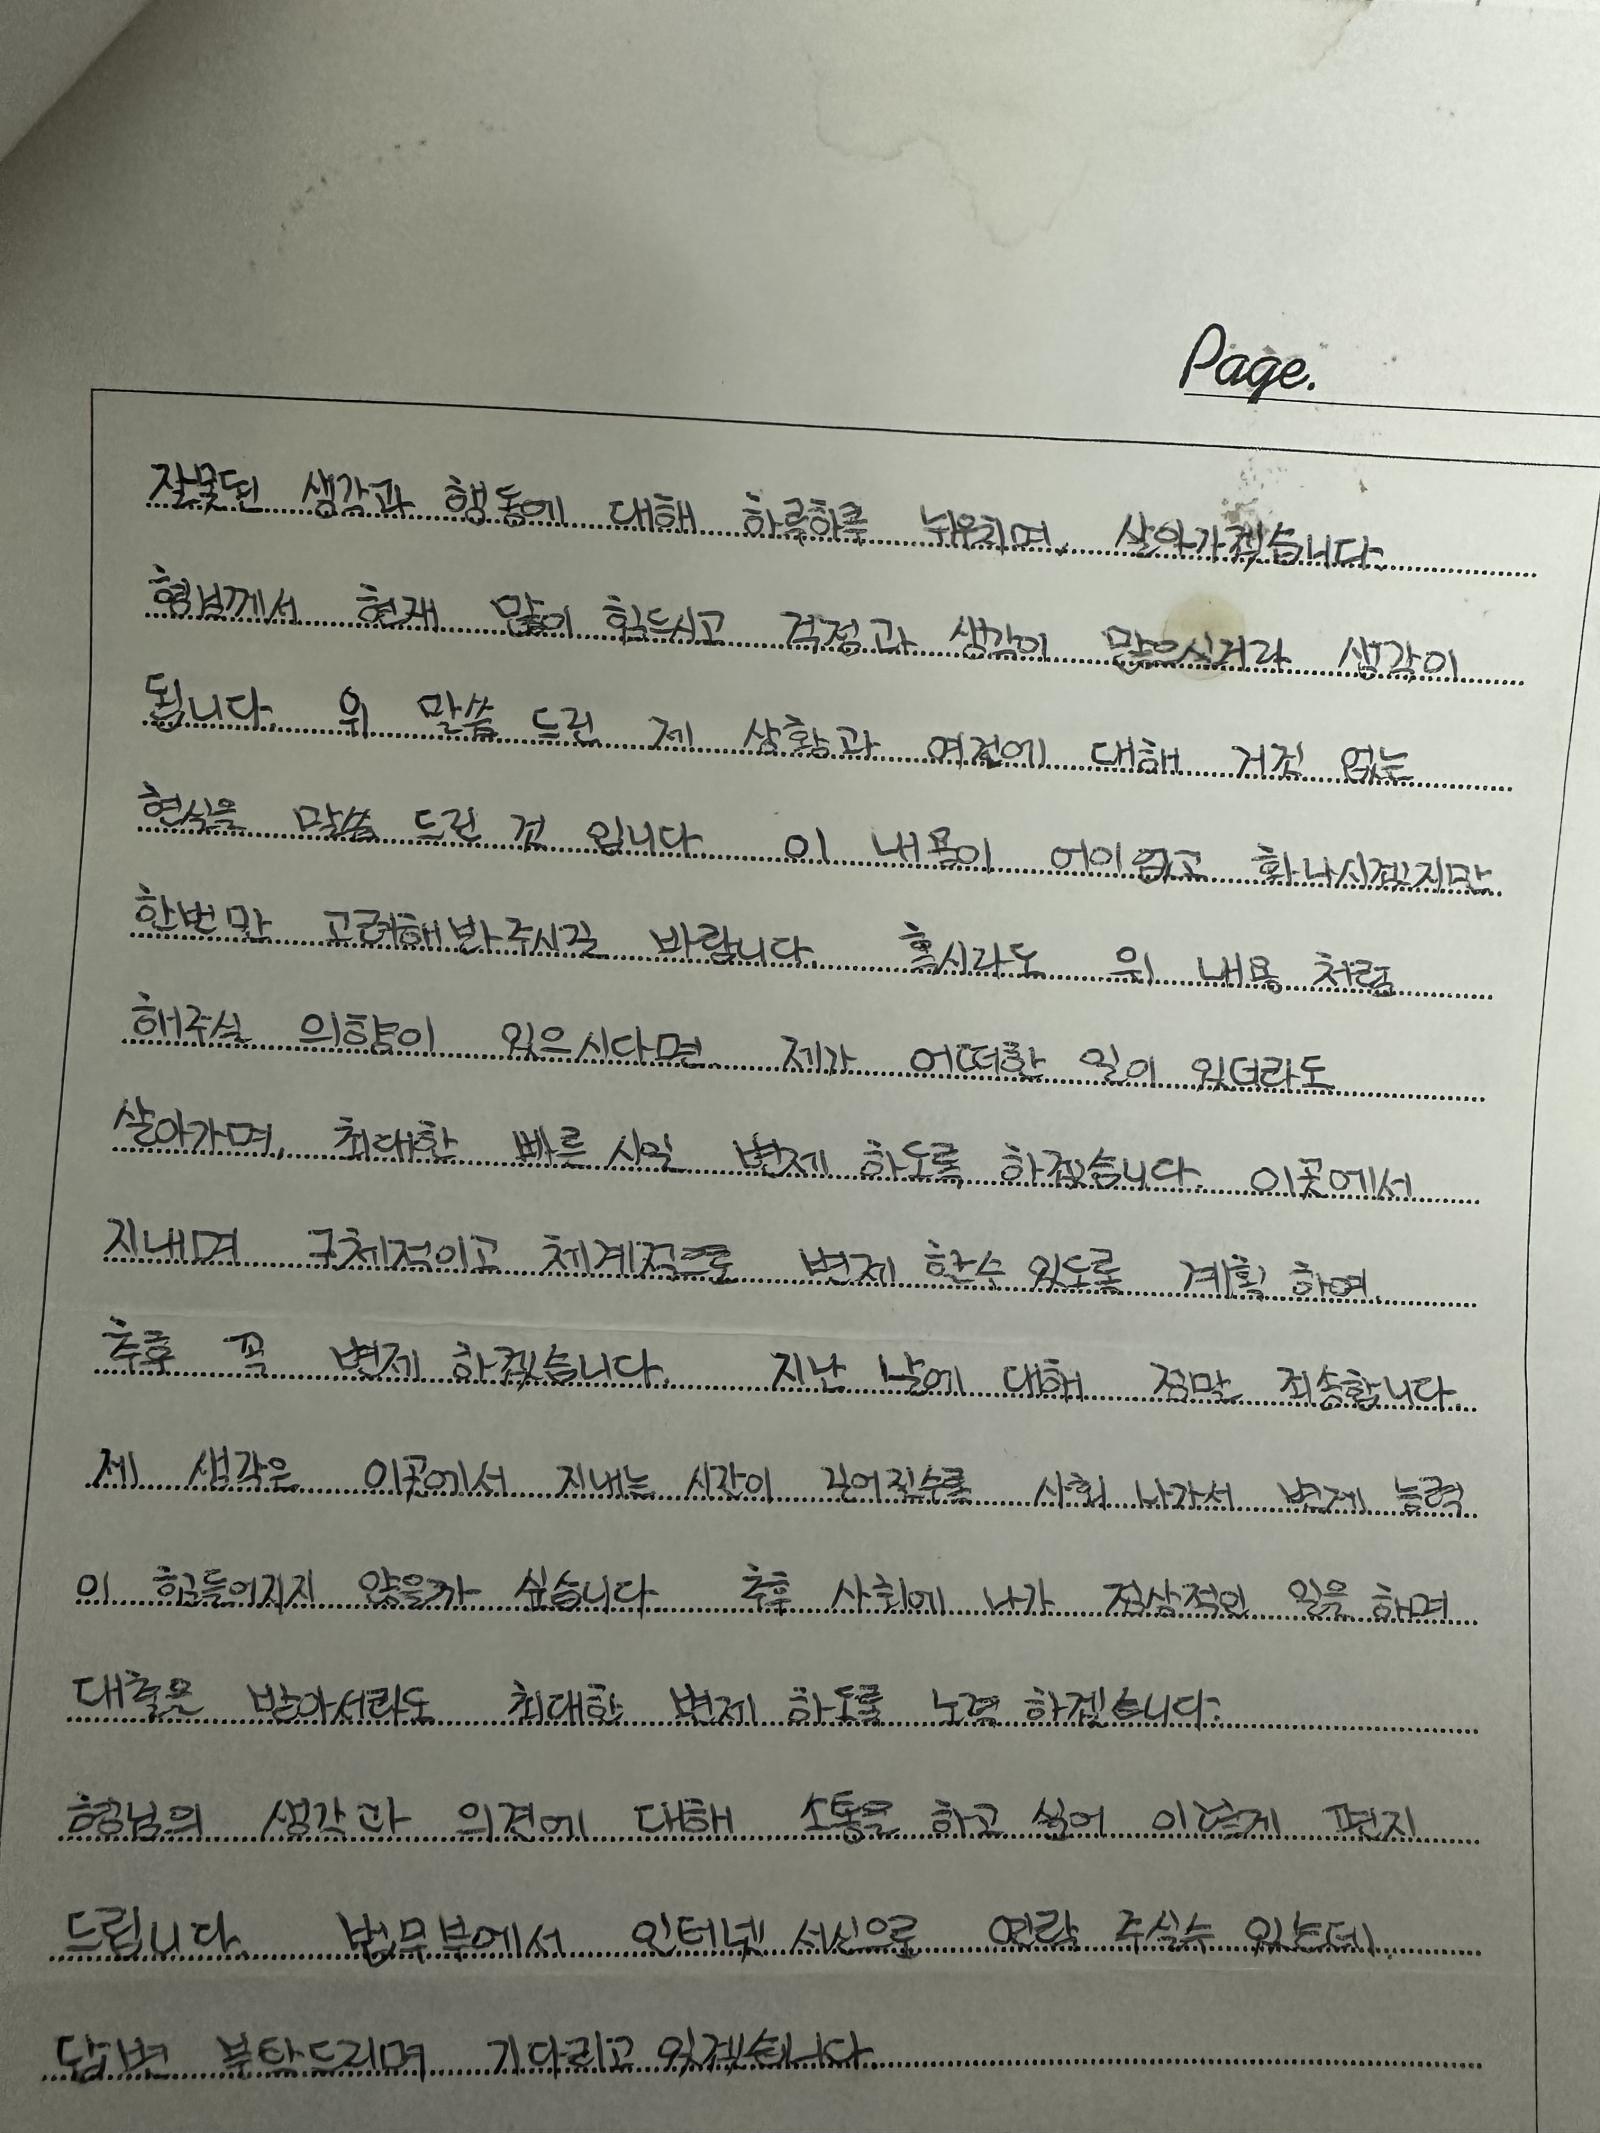 Page.
잘못된 생각과 행동에 대해 하루하루 뉘우치며, 살아가겠습니다.
형님께서 현재 많이 힘드시고 걱정과 생각이 많으실거라 생각이
됩니다. 위 말씀 드린 제 상황과 여건에 대해 거짓 없는
현실을 말씀 드린 것 입니다. 이 내용이 어이없고 화나시겠지만
한번만 고려해봐주시길 바랍니다. 혹시라도 위 내용 처럼
해주실 의향이 있으시다면 제가 어떠한 일이 있더라도
살아가며, 최대한 빠른 시일 변제 하도록 하겠습니다. 이곳에서
지내며 구체적이고 체계적으로 변제 할수 있도록 계획 하여,
추후 꼭 변제 하겠습니다. 지난 날에 대해 정말 죄송합니다.
제 생각은 이곳에서 지내는 시간이 길어질수록 사회 나가서 변제 능력
이 힘들어지지 않을까 싶습니다. 추후 사회에 나가 정상적인 일을 하며
대출을 받아서라도 최대한 변제 하도록 노력 하겠습니다.
형님의 생각과 의견에 대해 소통을 하고 싶어 이렇게 편지
드립니다. 법무부에서 인터넷 서신으로 연락 주실수 있는데,
답변 부탁드리며 기다리고 있겠습니다.